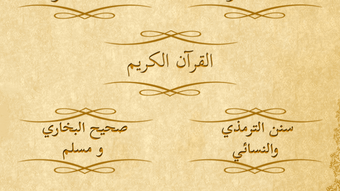 القرآن الكريم
سنن الترمذي
والنسائي
صحيح البخاري
و مسلم